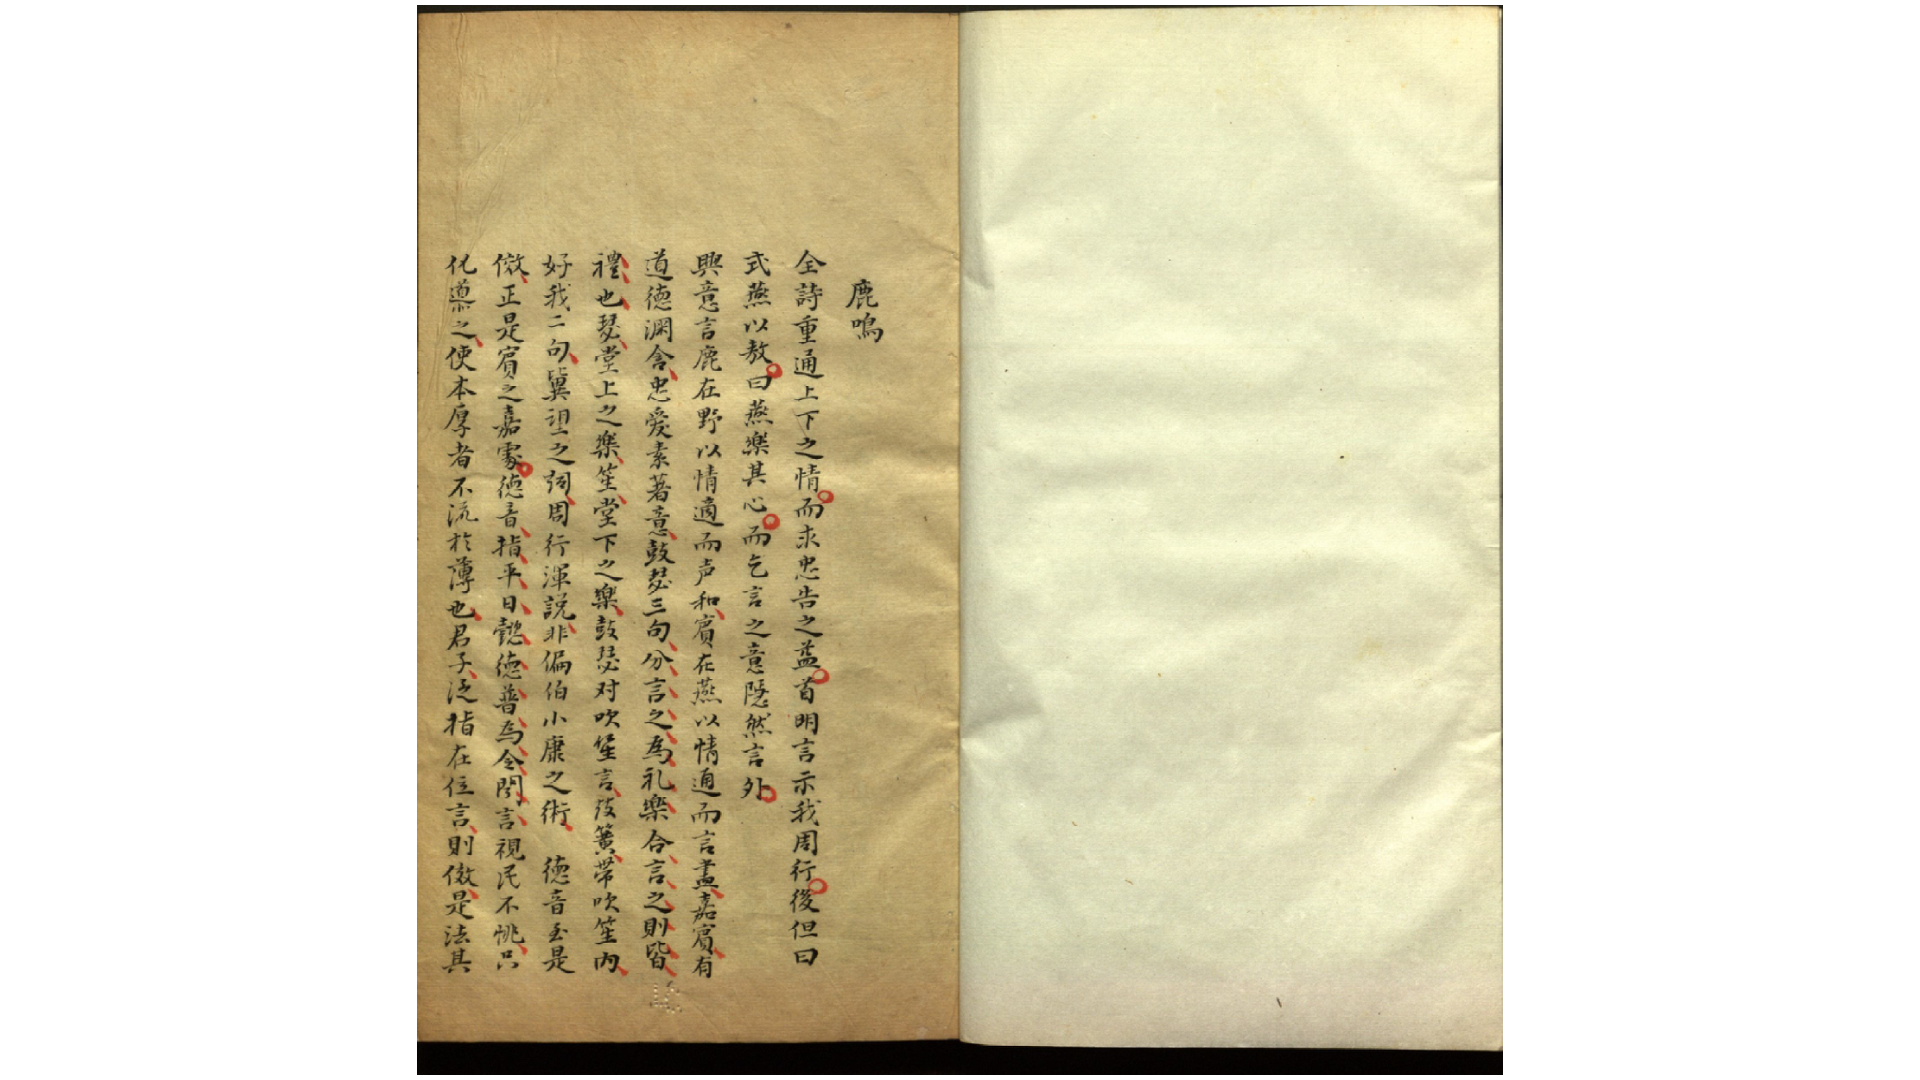 鹿鳴
全詩重通上下之情而求忠告之益首明言示我周行後但曰
式燕以敖曰燕樂其心而乞言之意隱然言外
興意言鹿在野以情適而声和賓在燕以情通而言盡嘉賓有
道德渊含忠爱素著意鼓瑟三句分言之為礼樂合言之則皆
禮也瑟堂上之樂笙堂下之樂鼓瑟对吹笙言鼓簧帶吹笙内
好我二句冀望之词周行渾説非偏伯小康之術 德音至是
傚正是賓之嘉處德音指平日懿德普為令聞言視民不恌只
化導之使本厚者不流於薄也君子泛指在位言則傚是法其